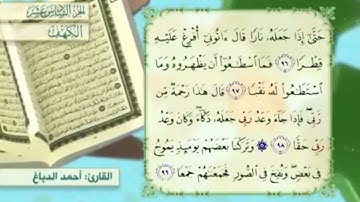 الجزء السادس عشر
الكهف
حَتَّىٰ إِذَا جَعَلَهُۥ نَارًا قَالَ ءَاتُونِىٓ أُفْرِغْ عَلَيْهِ
قِطْرًا ٩٦ فَمَا ٱسْطَٰعُوٓا۟ أَن يَظْهَرُوهُ وَمَا
ٱسْتَطَٰعُوا۟ لَهُۥ نَقْبًا ٩٧ قَالَ هَٰذَا رَحْمَةٌ مِّن
رَّبِّى فَإِذَا جَآءَ وَعْدُ رَبِّى جَعَلَهُۥ دَكَّآءَ وَكَانَ وَعْدُ
رَبِّى حَقًّا ٩٨ وَتَرَكْنَا بَعْضَهُمْ يَوْمَئِذٍ يَمُوجُ
فِى بَعْضٍ وَنُفِخَ فِى ٱلصُّورِ فَجَمَعْنَٰهُمْ جَمْعًا ٩٩
القارئ: أحمد الدباغ